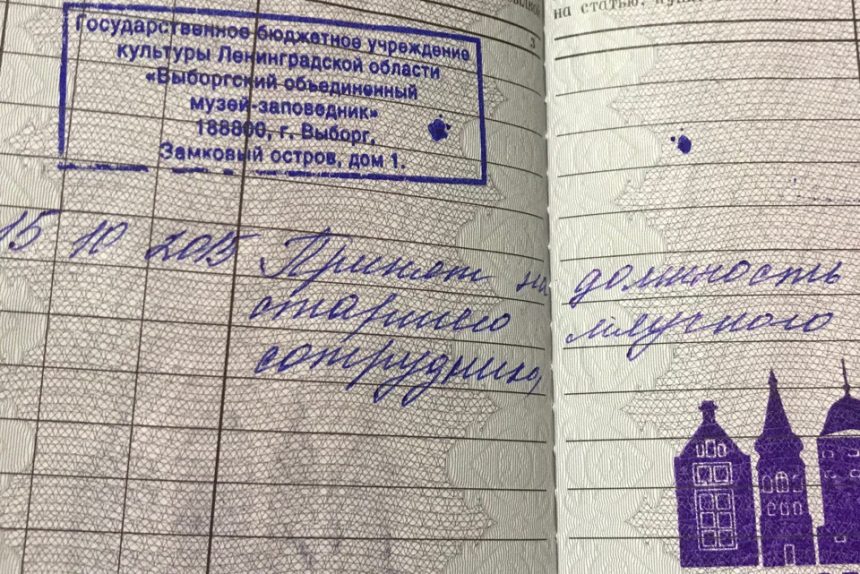 на статью,
3
Государственное бюджетное учреждение
культуры Ленинградской области
«Выборгский объединенный
музей-заповедник»
188800, г. Выборг,
Замковый остров, дом 1.
15 10 2015 Принят на должность
старшего научного
сотрудника,